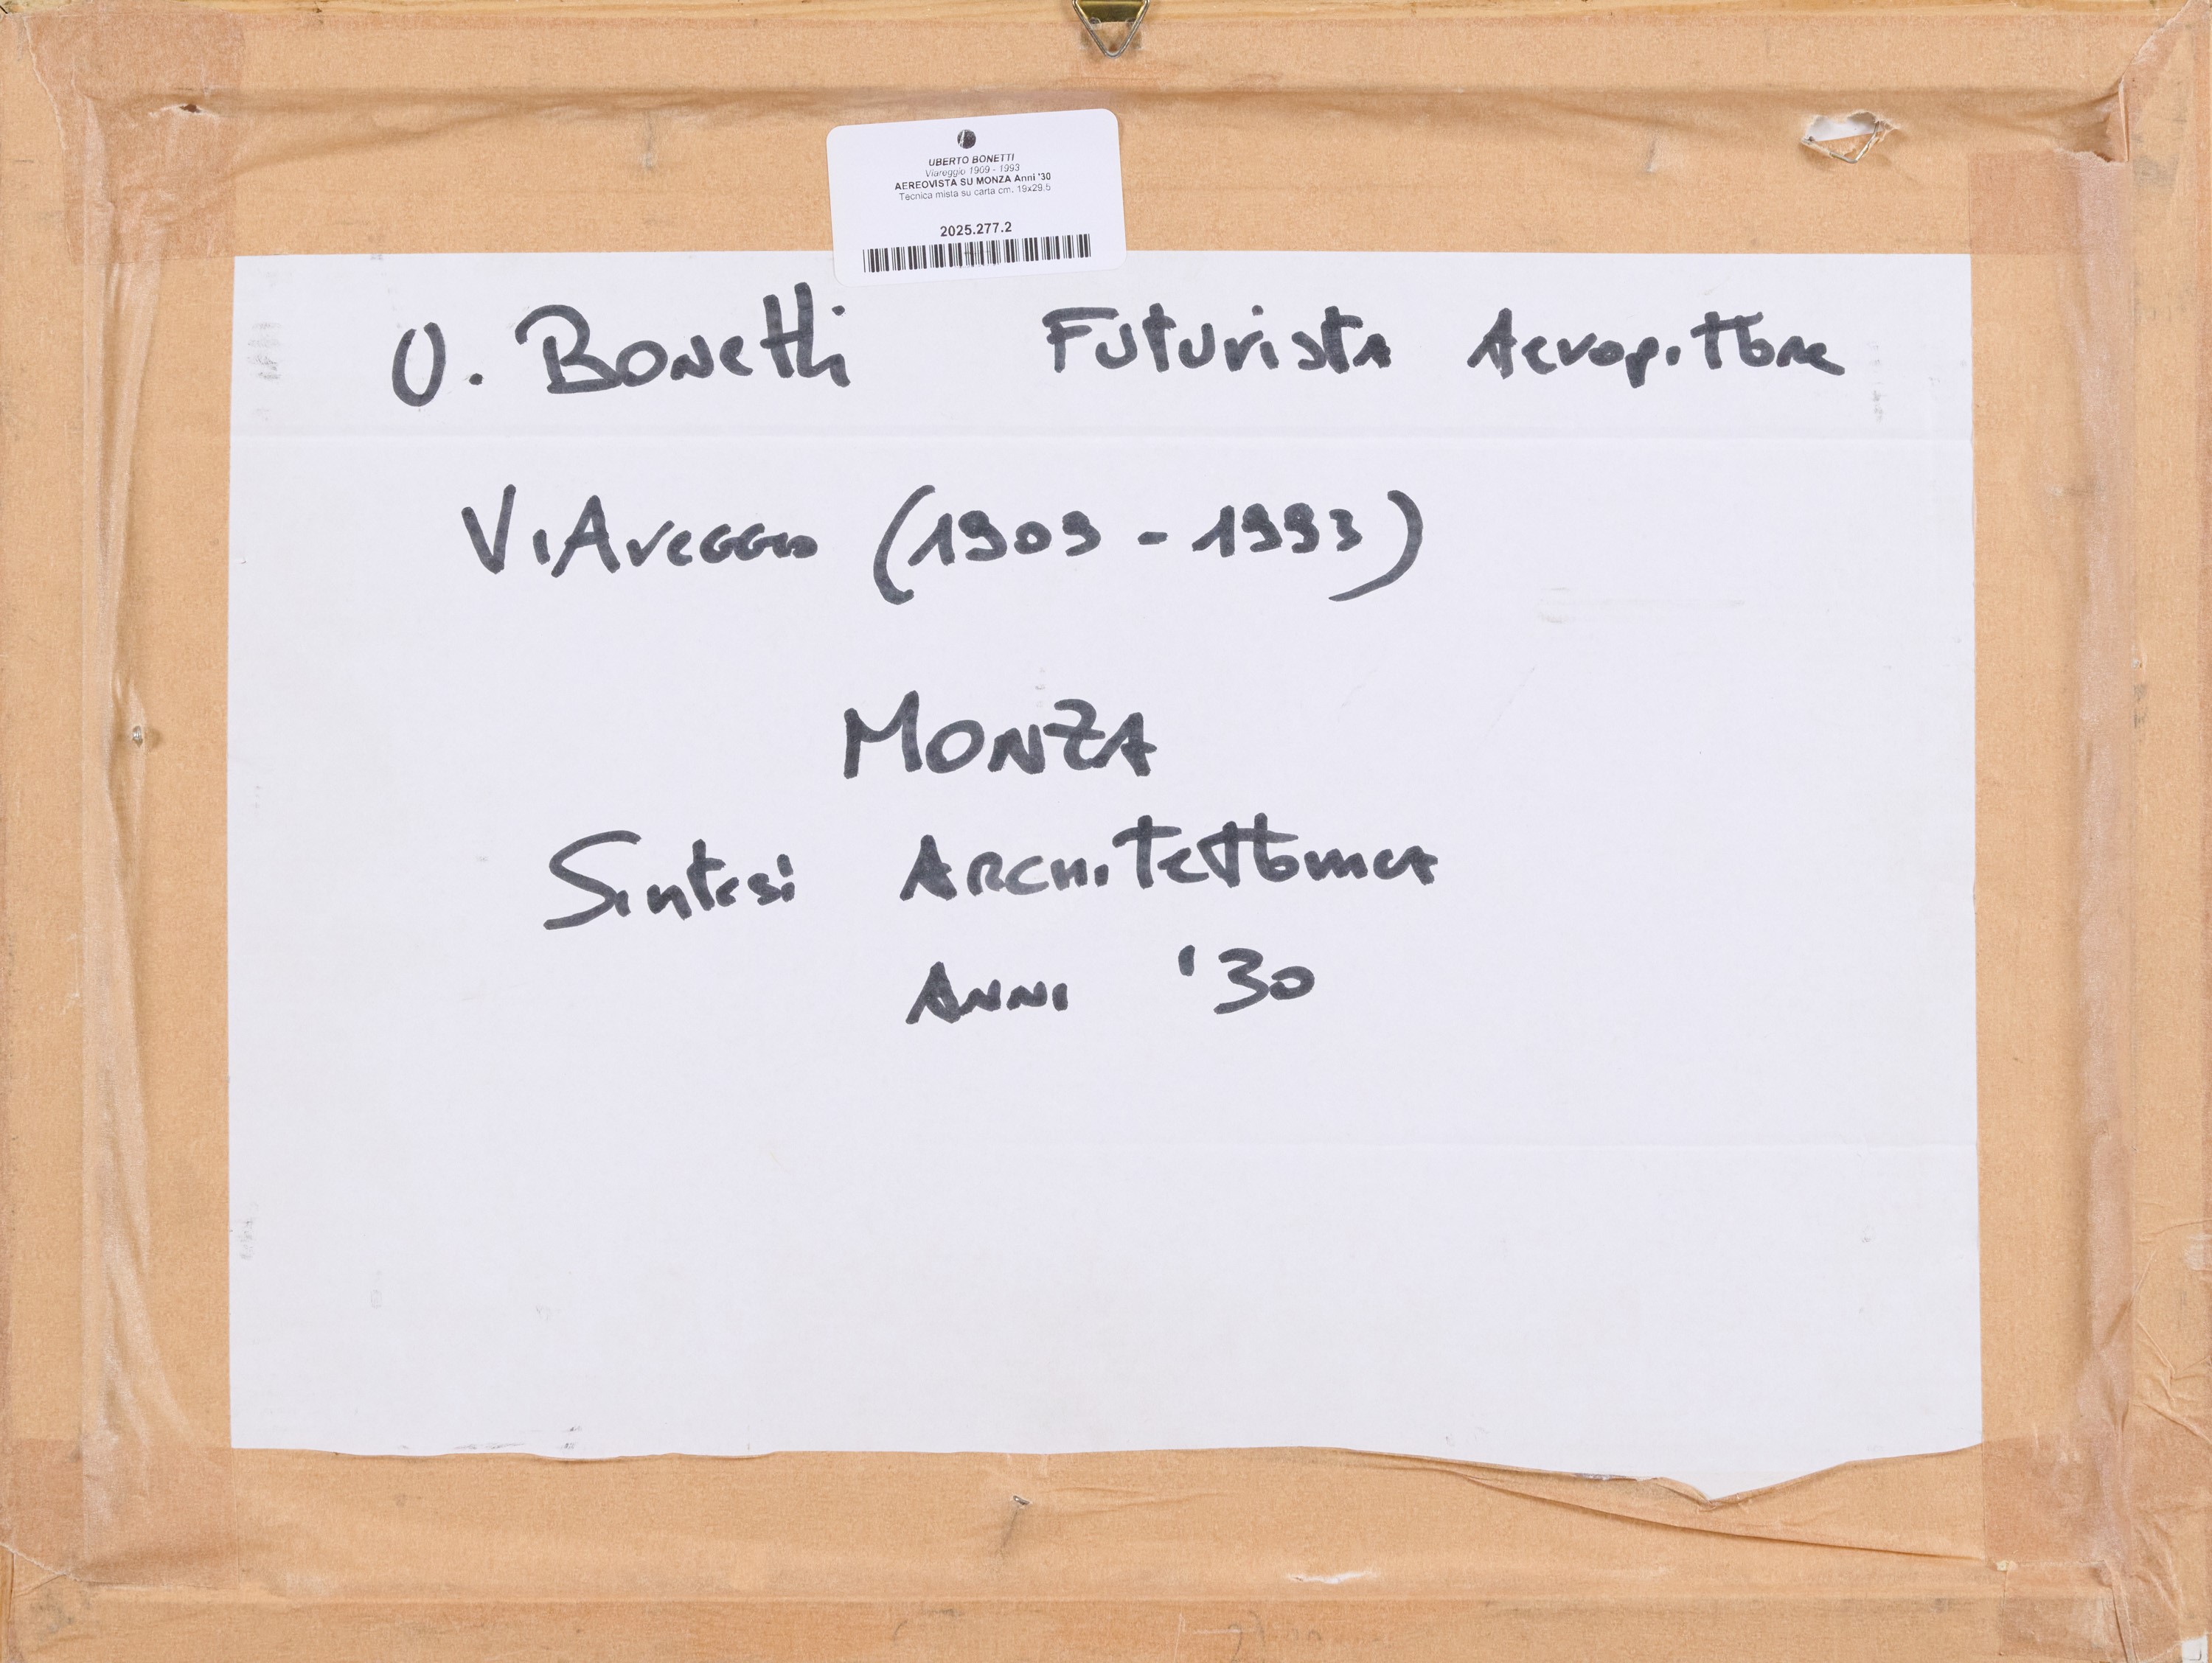 UBERTO BONETTI
Viareggio 1909 - 1993
AEREOVISTA SU MONZA Anni '30
Tecnica mista su carta cm. 19x29.5
2025.277.2
U. Bonetti Futurista Aeropittore
Viareggio (1909 - 1993)
MONZA
Sintesi Architettonica
Anni '30